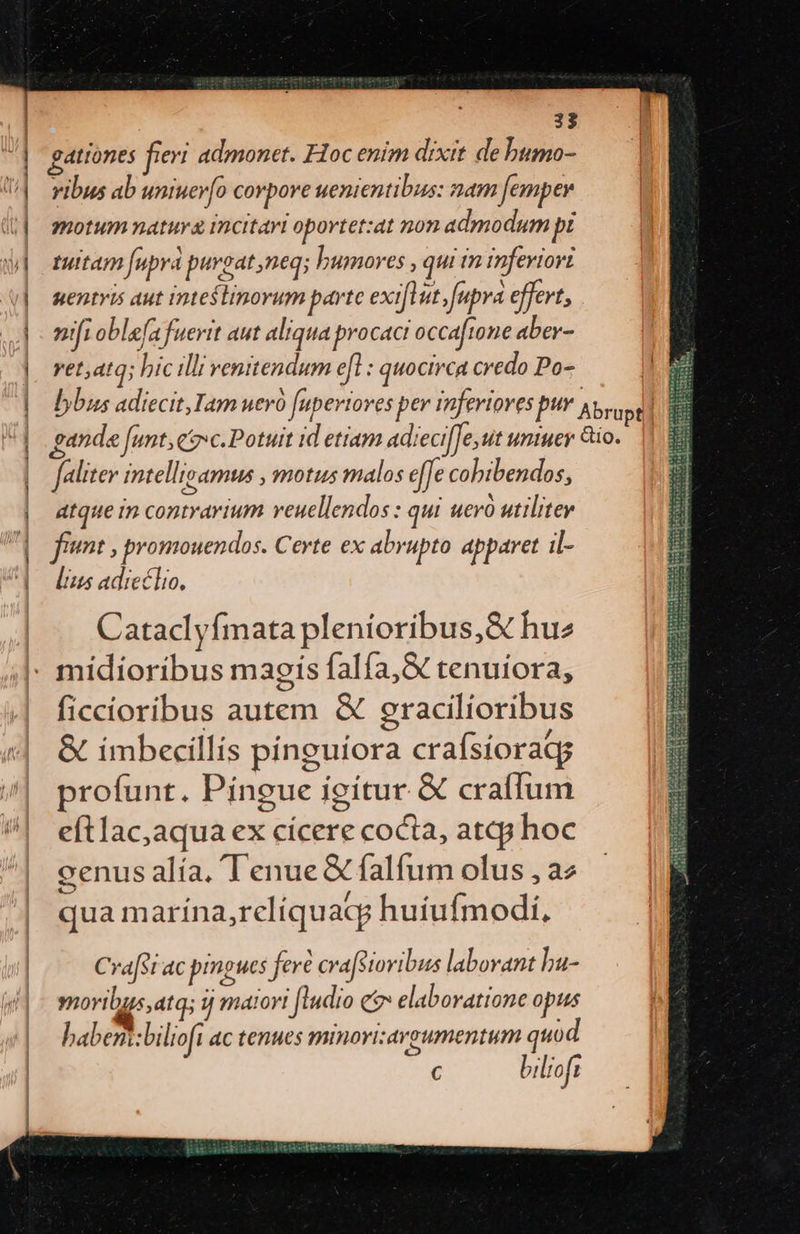 33
gationes fieri admonet. Hoc enim dixit de humo-
ribus ab uniuerſo corpore uenientibus: nam ſemper
motum naturæ incitari oportet:at non admodum pi
tuitam ſuprà purgat,neq; humores , qui in inferiori
uentris aut inteſtinorum parte exiſtũt,ſuprà effert,
niſi oblæſa fuerit aut aliqua procaci occaſione aber-
ret,atq; hic illi renitendum eſt : quocirca credo Po-
lybus adiecit,Iam uerò ſuperiores per inferiores pur
Abrupt
gandæ ſunt,&c.Potuit id etiam adieciſſe,ut uniuer
ctio.
ſaliter intelligamus , motus malos eſſe cohibendos,
atque in contrarium reuellendos : qui uerò utiliter
fiunt , promouendos. Certe ex abrupto apparet il-
lius adiectio.
Cataclyſmata plenioribus,& hu⸗
midioribus magis ſalſa,& tenuiora,
ſiccioribus autem & gracilioribus
& imbecillis pinguiora craſsioraq;
proſunt. Pingue igitur & craſſum
eſt lac,aqua ex cicere cocta, atq; hoc
genus alia. Tenue & ſalſum olus , a⸗
qua marina,reliquaq; huiuſmodi.
Craſsi ac pingues ferè craſsioribus laborant hu-
moribus,atq; ij maiori ſtudio & elaboratione opus
habent:bilioſi ac tenues minori:argumentum quòd
c
bilioſi